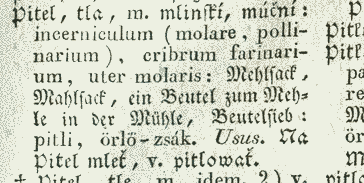 Pitel, tla, m. mlinſki, múčni:
incerniculum (molare, polli-
narium), cribrum farinari-
um, uter molaris: Mehlſack,
Mahlſack, ein Beutel zum Meh-
le in der Mühle, Beutelſieb:
pitli, örlö-zsák. Usus. Na
Pitel mlet, v. pitlowat.
† Pitel, tle, m. idem. 2) v.